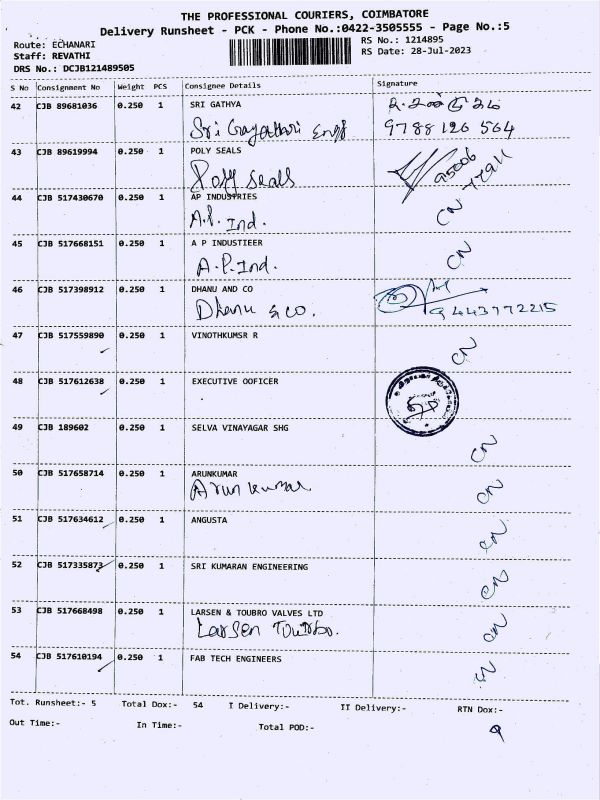 THE PROFESSIONAL COURIERS, COIMBATORE
Delivery Runsheet - PCK - Phone No.:0422-3505555 - Page No.:5
Route: ECHANARI
RS No.: 1214895
Staff: REVATHI
RS Date: 28-Jul-2023
DRS No.: DCJB121489505
S No Consignment No Weight PCS Consignee Details Signature
42 CJB 89681036 0.250 1 SRI GATHYA
Sri Gayathari Engg 9788126564
43 CJB 89619994 0.250 1 POLY SEALS
Poly seals 95006 77911
44 CJB 517430670 0.250 1 AP INDUSTRIES
A.P. Ind. CN
45 CJB 517668151 0.250 1 A P INDUSTIEER
A.P. Ind. CN
46 CJB 517398912 0.250 1 DHANU AND CO
Dhanu & co. 9443772215
47 CJB 517559890 0.250 1 VINOTHKUMSR R CN
48 CJB 517612638 0.250 1 EXECUTIVE OOFICER
49 CJB 189602 0.250 1 SELVA VINAYAGAR SHG CN
50 CJB 517658714 0.250 1 ARUNKUMAR
Arun kumar CN
51 CJB 517634612 0.250 1 ANGUSTA CN
52 CJB 517335873 0.250 1 SRI KUMARAN ENGINEERING CN
53 CJB 517668498 0.250 1 LARSEN & TOUBRO VALVES LTD
Larsen Toubro. CN
54 CJB 517610194 0.250 1 FAB TECH ENGINEERS CN
Tot. Runsheet:- 5 Total Dox:- 54 I Delivery:- II Delivery:- RTN Dox:-
Out Time:- In Time:- Total POD:- 9